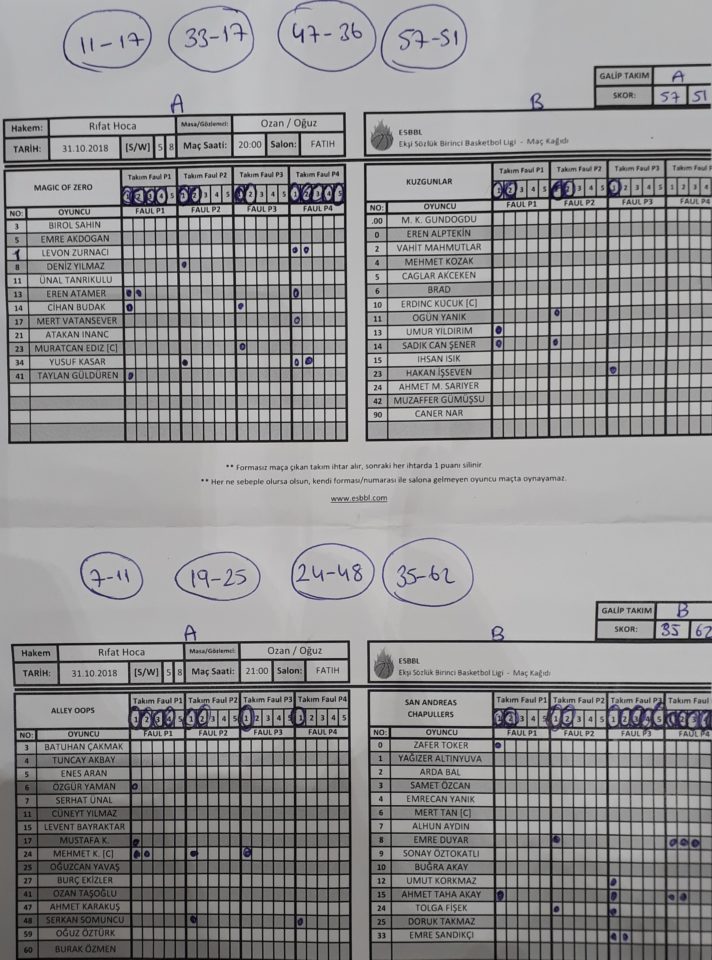 11-17 33-17 47-36 57-51
GALİP TAKIM A
SKOR: 57 51
A
Hakem: Rıfat Hoca Masa/Gözlemci: Ozan / Oğuz
TARİH: 31.10.2018 [S/W] 5 8 Maç Saati: 20:00 Salon: FATIH
B
ESBBL
Ekşi Sözlük Birinci Basketbol Ligi - Maç Kağıdı
MAGIC OF ZERO Takım Faul P1 Takım Faul P2 Takım Faul P3 Takım Faul P4
1 2 3 4 5 1 2 3 4 5 1 2 3 4 5 1 2 3 4 5
NO: OYUNCU FAUL P1 FAUL P2 FAUL P3 FAUL P4
3 BIROL SAHIN
5 EMRE AKDOGAN
1 LEVON ZURNACI
8 DENİZ YILMAZ
11 ÜNAL TANRIKULU
13 EREN ATAMER
14 CİHAN BUDAK
17 MERT VATANSEVER
21 ATAKAN INANC
23 MURATCAN EDIZ [C]
34 YUSUF KASAR
41 TAYLAN GÜLDÜREN
KUZGUNLAR Takım Faul P1 Takım Faul P2 Takım Faul P3 Takım Faul P
1 2 3 4 5 1 2 3 4 5 1 2 3 4 5 1 2 3 4
NO: OYUNCU FAUL P1 FAUL P2 FAUL P3 FAUL P4
.00 M. K. GUNDOGDU
0 EREN ALPTEKİN
2 VAHİT MAHMUTLAR
4 MEHMET KOZAK
5 CAGLAR AKCEKEN
6 BRAD
10 ERDINC KUCUK [C]
11 OGÜN YANIK
13 UMUR YILDIRIM
14 SADIK CAN ŞENER
15 IHSAN ISIK
23 HAKAN İŞSEVEN
24 AHMET M. SARIYER
42 MUZAFFER GÜMÜŞSU
90 CANER NAR
** Formasız maça çıkan takım ihtar alır, sonraki her ihtarda 1 puanı silinir.
** Her ne sebeple olursa olsun, kendi forması/numarası ile salona gelmeyen oyuncu maçta oynayamaz.
www.esbbl.com
7-11 19-25 24-48 35-62
GALİP TAKIM B
SKOR: 35 62
A
Hakem Rıfat Hoca Masa/Gözlemci: Ozan / Oğuz
TARİH: 31.10.2018 [S/W] 5 8 Maç Saati: 21:00 Salon: FATIH
B
ESBBL
Ekşi Sözlük Birinci Basketbol Ligi - Maç Kağıdı
ALLEY OOPS Takım Faul P1 Takım Faul P2 Takım Faul P3 Takım Faul P4
1 2 3 4 5 1 2 3 4 5 1 2 3 4 5 1 2 3 4 5
NO: OYUNCU FAUL P1 FAUL P2 FAUL P3 FAUL P4
3 BATUHAN ÇAKMAK
4 TUNCAY AKBAY
5 ENES ARAN
6 ÖZGÜR YAMAN
7 SERHAT ÜNAL
11 CÜNEYT YILMAZ
15 LEVENT BAYRAKTAR
17 MUSTAFA K.
24 MEHMET K. [C]
25 OĞUZCAN YAVAŞ
27 BURÇ EKİZLER
41 OZAN TAŞOĞLU
47 AHMET KARAKUŞ
48 SERKAN SOMUNCU
59 OĞUZ ÖZTÜRK
60 BURAK ÖZMEN
SAN ANDREAS CHAPULLERS Takım Faul P1 Takım Faul P2 Takım Faul P3 Takım Faul
1 2 3 4 5 1 2 3 4 5 1 2 3 4 5 1 2 3
NO: OYUNCU FAUL P1 FAUL P2 FAUL P3 FAUL P4
0 ZAFER TOKER
1 YAĞIZER ALTINYUVA
2 ARDA BAL
3 SAMET ÖZCAN
4 EMRECAN YANIK
6 MERT TAN [C]
7 ALHUN AYDIN
8 EMRE DUYAR
9 SONAY ÖZTOKATLI
10 BUĞRA AKAY
12 UMUT KORKMAZ
15 AHMET TAHA AKAY
24 TOLGA FİŞEK
25 DORUK TAKMAZ
33 EMRE SANDIKÇI